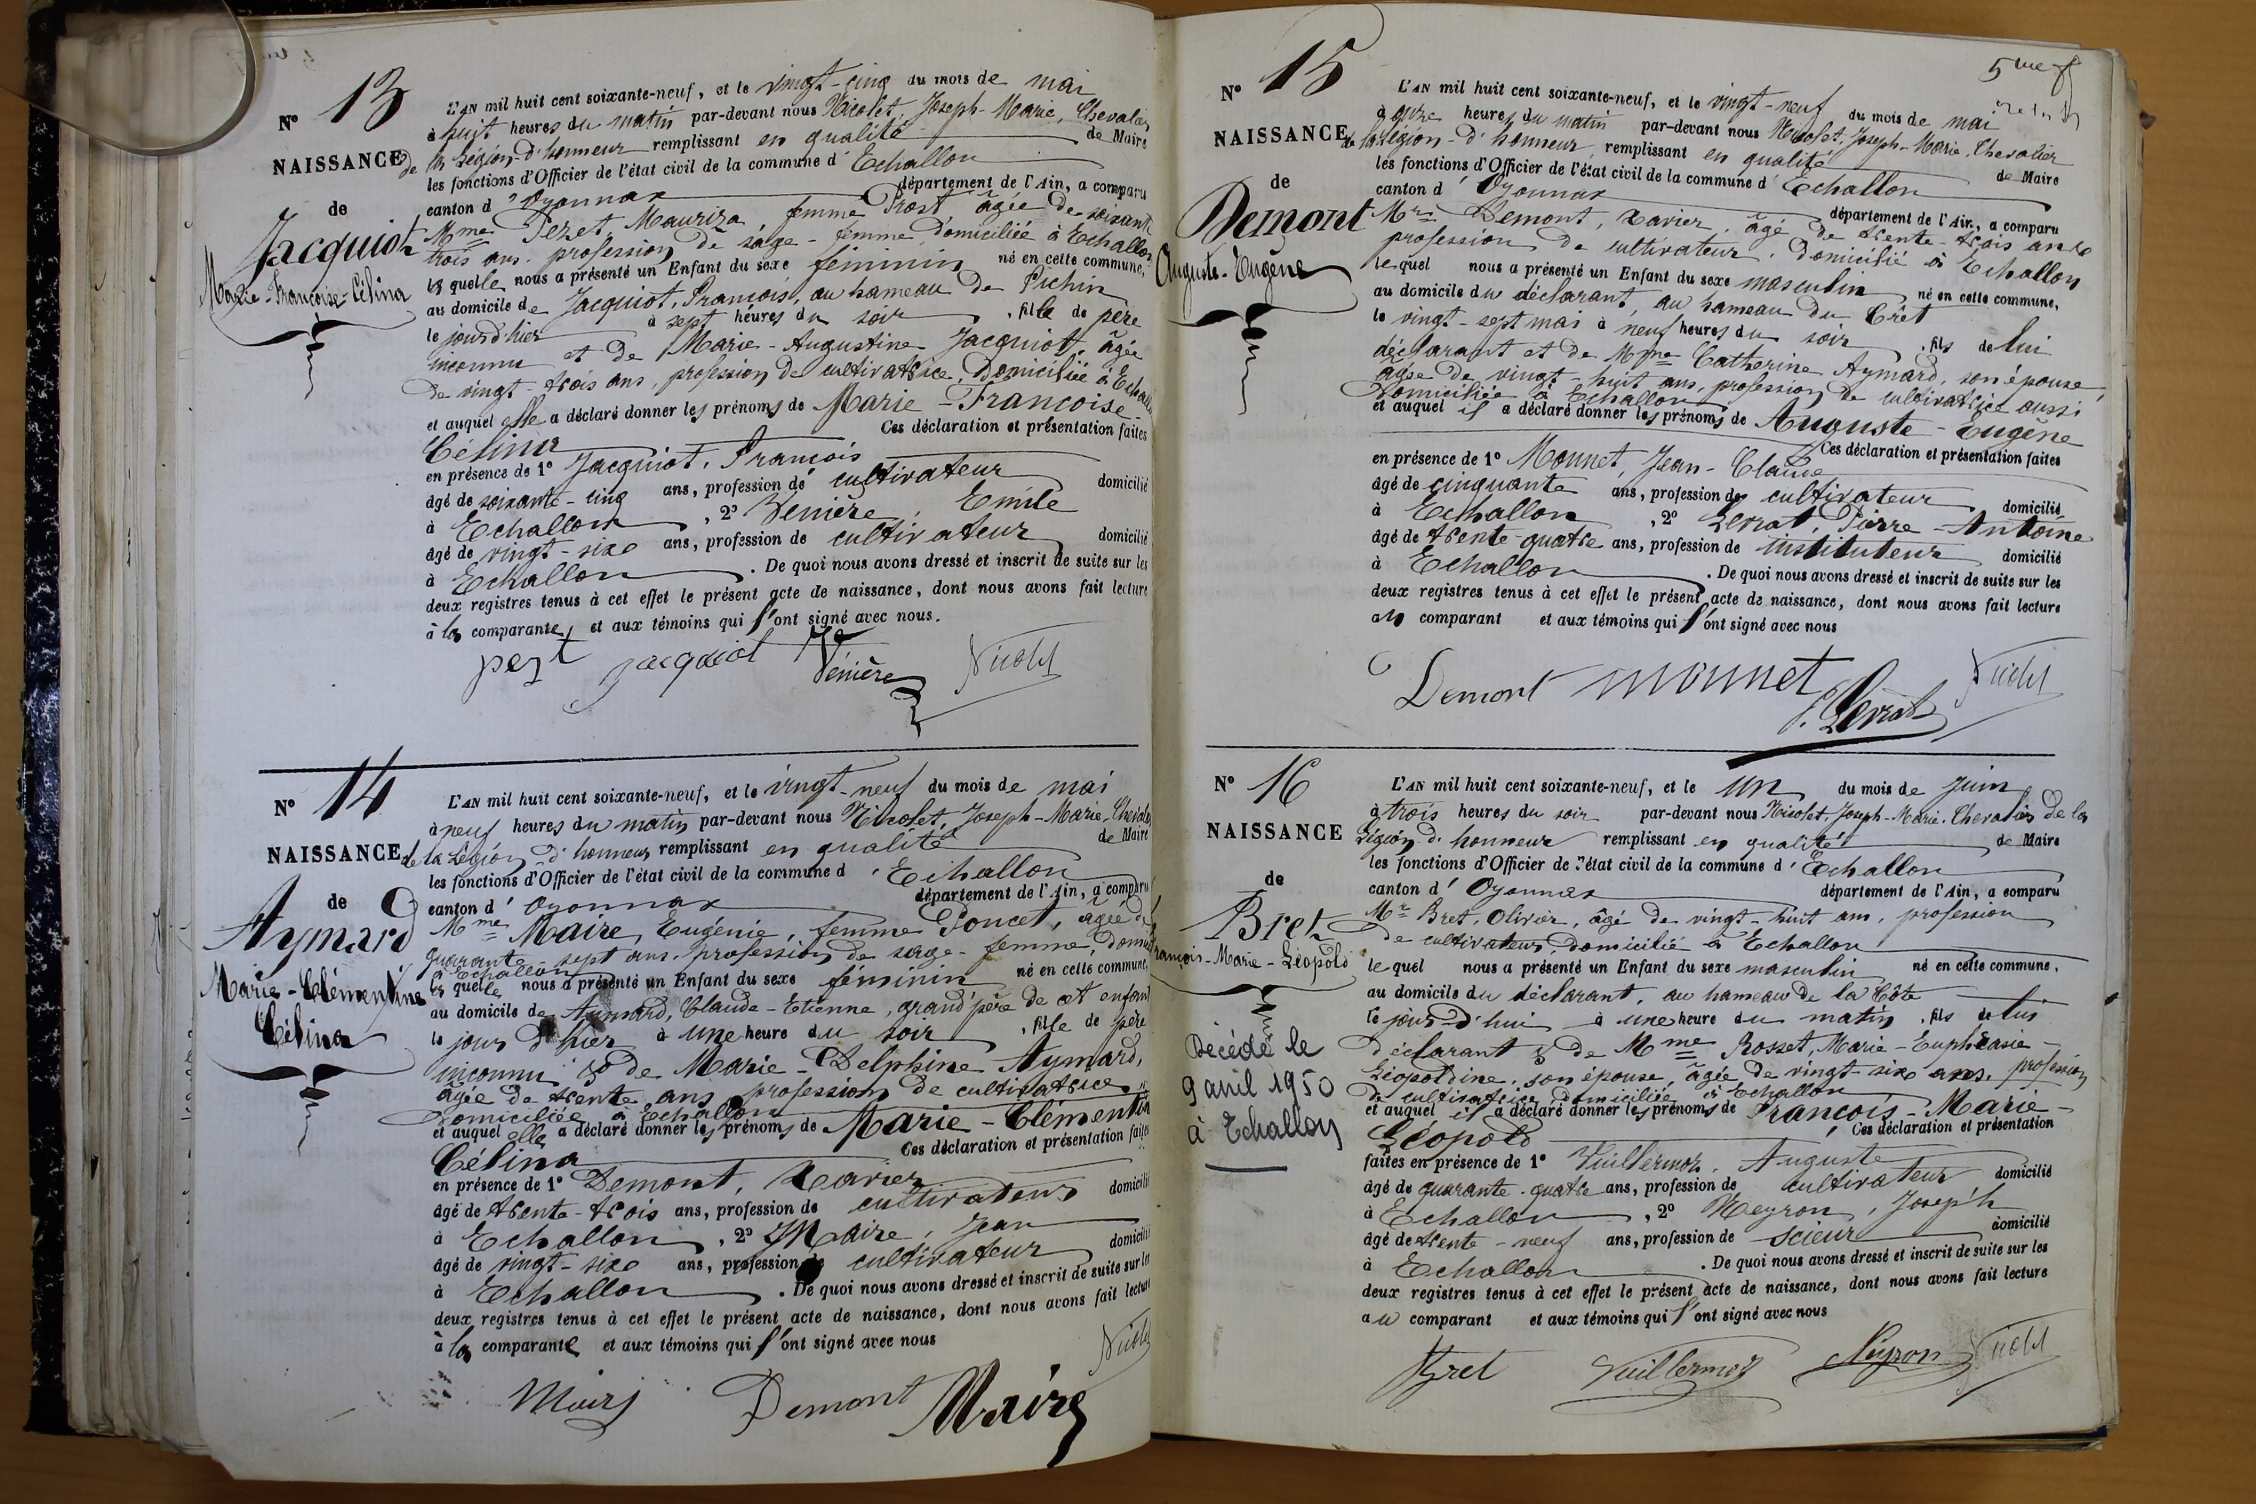 N° 13
NAISSANCE
de
Jacquiot
Marie-Françoise-Célina
L'AN mil huit cent soixante-neuf, et le vingt-cinq du mois de mai
à huit heures du matin par-devant nous Nicolet, Joseph-Marie, Chevalier
de la Légion-d'honneur remplissant en qualité de Maire
les fonctions d'Officier de l'état civil de la commune d'Echallon
canton d'Oyonnax département de l'Ain, a comparu
Mme Peret, Mauriza, femme Prost âgée de soixante
trois ans, profession de sage-femme, domiciliée à Echallon
laquelle nous a présenté un Enfant du sexe féminin né en cette commune,
au domicile de Jacquiot, François, au hameau de Pichin
le jourd'hier à sept heures du soir, fille de père
inconnu et de Marie-Augustine Jacquiot, âgée
de vingt-trois ans, profession de cultivatrice, domiciliée à Echallon
et auquel elle a déclaré donner les prénoms de Marie-Françoise-
Célina Ces déclaration et présentation faites
en présence de 1° Jacquiot, François
âgé de soixante-cinq ans, profession de cultivateur domicilié
à Echallon, 2° Venière, Emile
âgé de vingt-six ans, profession de cultivateur domicilié
à Echallon. De quoi nous avons dressé et inscrit de suite sur les
deux registres tenus à cet effet le présent acte de naissance, dont nous avons fait lecture
à la comparante, et aux témoins qui l'ont signé avec nous.
jacquiot Venière Nicolet
N° 14
NAISSANCE
de
Aymard
Marie-Clémentine
Célina
L'AN mil huit cent soixante-neuf, et le vingt-neuf du mois de mai
à neuf heures du matin par-devant nous Nicolet, Joseph-Marie, Chevalier
de la Légion-d'honneur remplissant en qualité de Maire
les fonctions d'Officier de l'état civil de la commune d'Echallon
canton d'Oyonnax département de l'Ain, a comparu
Mme Maire, Eugénie, femme Poncet, âgée de
quarante-sept ans, profession de sage-femme, domiciliée
à Echallon
laquelle nous a présenté un Enfant du sexe féminin né en cette commune,
au domicile de Aymard, Claude-Etienne, grand'père de cet enfant
le jour d'hier à une heure du soir, fille de père
inconnu & de Marie-Delphine Aymard,
âgée de trente ans, profession de cultivatrice
domiciliée à Echallon
et auquel elle a déclaré donner les prénoms de Marie-Clémentine
Célina Ces déclaration et présentation faites
en présence de 1° Demont, Xavier
âgé de trente-trois ans, profession de cultivateur domicilié
à Echallon, 2° Maire, Jean
âgé de vingt-six ans, profession de cultivateur domicilié
à Echallon. De quoi nous avons dressé et inscrit de suite sur les
deux registres tenus à cet effet le présent acte de naissance, dont nous avons fait lecture
à la comparante et aux témoins qui l'ont signé avec nous
Nicolet
Demont Maire
5me
N° 15
NAISSANCE
de
Demont
Auguste-Eugène
L'AN mil huit cent soixante-neuf, et le vingt-neuf du mois de mai
à onze heures du matin par-devant nous Nicolet, Joseph-Marie, Chevalier
de la Légion-d'honneur, remplissant en qualité de Maire
les fonctions d'Officier de l'état civil de la commune d'Echallon
canton d'Oyonnax département de l'Ain, a comparu
Mr Demont, Xavier, âgé de trente-trois ans
profession de cultivateur, domicilié à Echallon
lequel nous a présenté un Enfant du sexe masculin né en cette commune,
au domicile du déclarant, au hameau du Crêt
le vingt-sept mai à neuf heures du soir, fils de lui
déclarant et de Mme Catherine Aymard, son épouse
âgée de vingt-huit ans, profession de cultivatrice aussi
domiciliée à Echallon
et auquel il a déclaré donner les prénoms de Auguste-Eugène
Ces déclaration et présentation faites
en présence de 1° Monnet, Jean-Claude
âgé de cinquante ans, profession de cultivateur domicilié
à Echallon, 2° Levrat, Pierre-Antoine
âgé de trente-quatre ans, profession de instituteur domicilié
à Echallon. De quoi nous avons dressé et inscrit de suite sur les
deux registres tenus à cet effet le présent acte de naissance, dont nous avons fait lecture
au comparant et aux témoins qui l'ont signé avec nous
Demont monnet Levrat Nicolet
N° 16
NAISSANCE
de
Bret
François-Marie-Léopold
Décédé le
9 avril 1950
à Echallon
L'AN mil huit cent soixante-neuf, et le un du mois de Juin
à trois heures du soir par-devant nous Nicolet, Joseph-Marie, Chevalier de la
Légion d'honneur remplissant en qualité de Maire
les fonctions d'Officier de l'état civil de la commune d'Echallon
canton d'Oyonnax département de l'Ain, a comparu
Mr Bret, Olivier, âgé de vingt-huit ans, profession
de cultivateur, domicilié à Echallon
lequel nous a présenté un Enfant du sexe masculin né en cette commune,
au domicile du déclarant, au hameau de la Côte
le jour-d'hui à une heure du matin, fils de lui
déclarant & de Mme Rosset, Marie-Euphrasie-
Léopoldine, son épouse, âgée de vingt-six ans, profession
de cultivatrice, domiciliée à Echallon
et auquel il a déclaré donner les prénoms de François-Marie-
Léopold Ces déclaration et présentation
faites en présence de 1° Vuillermoz, Auguste
âgé de quarante-quatre ans, profession de cultivateur domicilié
à Echallon, 2° Neyron, Joseph
âgé de trente-neuf ans, profession de scieur domicilié
à Echallon. De quoi nous avons dressé et inscrit de suite sur les
deux registres tenus à cet effet le présent acte de naissance, dont nous avons fait lecture
au comparant et aux témoins qui l'ont signé avec nous
Bret Vuillermoz Neyron Nicolet